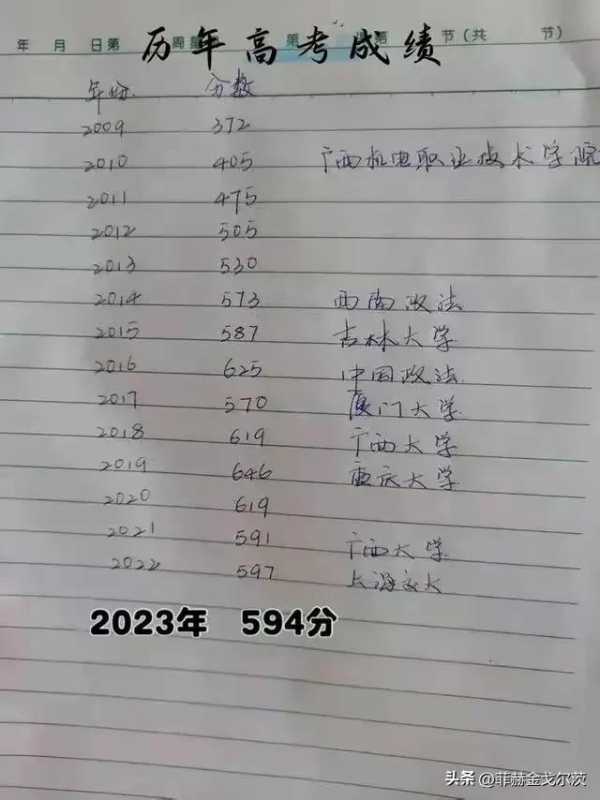 年 月 日第 周星 第 节(共 节)
历年高考成绩
年份 分数
2009 372
2010 405 广西机电职业技术学院
2011 475
2012 505
2013 530
2014 573 西南政法
2015 587 吉林大学
2016 625 中国政法
2017 570 厦门大学
2018 619 广西大学
2019 646 重庆大学
2020 619
2021 591 广西大学
2022 597 上海交大
2023年 594分
头条 @菲赫金戈尔茨